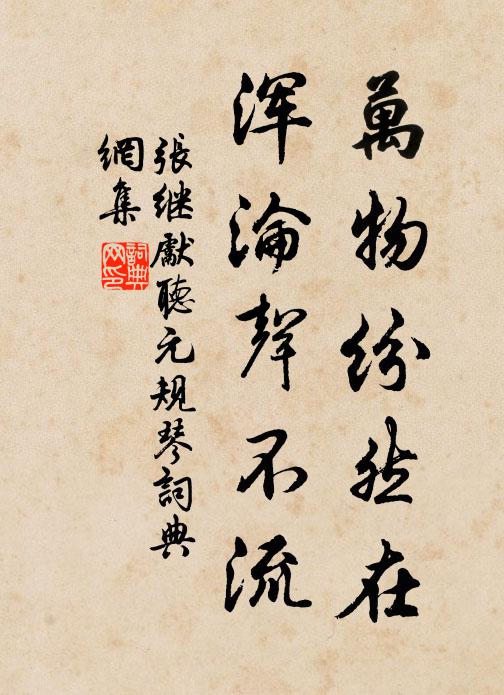 萬物紛然在
渾淪聲不流
張继獻聽元規琴詞典
網集
詞典
网印